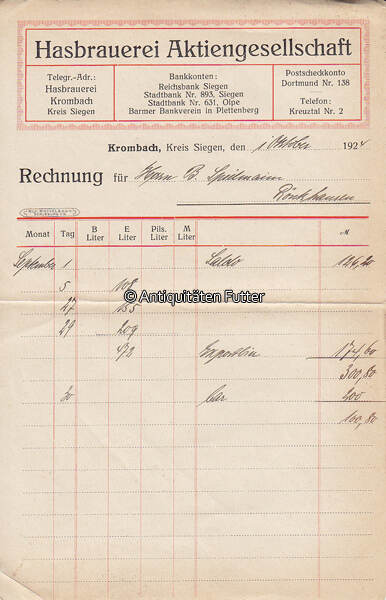 Hasbrauerei Aktiengesellschaft
Telegr.-Adr.:
Hasbrauerei
Krombach
Kreis Siegen
Bankkonten:
Reichsbank Siegen
Stadtbank Nr. 893, Siegen
Stadtbank Nr. 631, Olpe
Barmer Bankverein in Plettenberg
Postscheckkonto
Dortmund Nr. 138
Telefon:
Kreuztal Nr. 2
Krombach, Kreis Siegen, den 1. Oktober 1924
Rechnung für Herrn B.
Rönkhausen
Monat Tag B Liter E Liter Pils. Liter M Liter M
September 1 Saldo
5 108
© Antiquitäten Futter
27 155
29 209
472 Exportbier 174,60
300,80
30 Bar 200
100,80